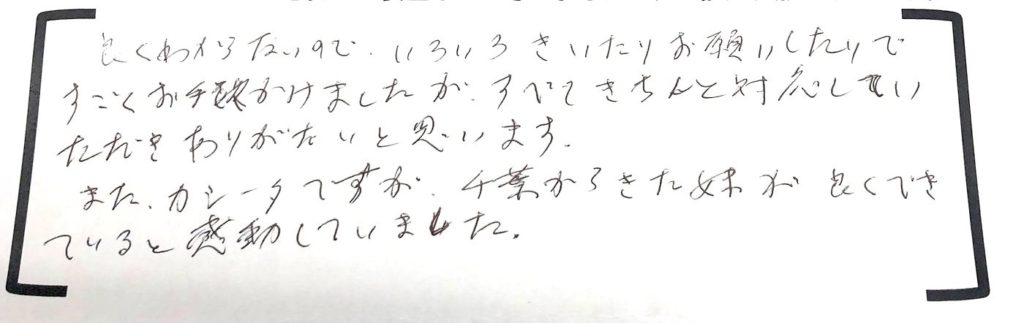 良くわからないので、いろいろきいたりお願いしたりで
すごくお手数かけましたが、すべてきちんと対応してい
ただきありがたいと思います。
また、カシータですが、千葉からきた妹が良くでき
ていると感動していました。